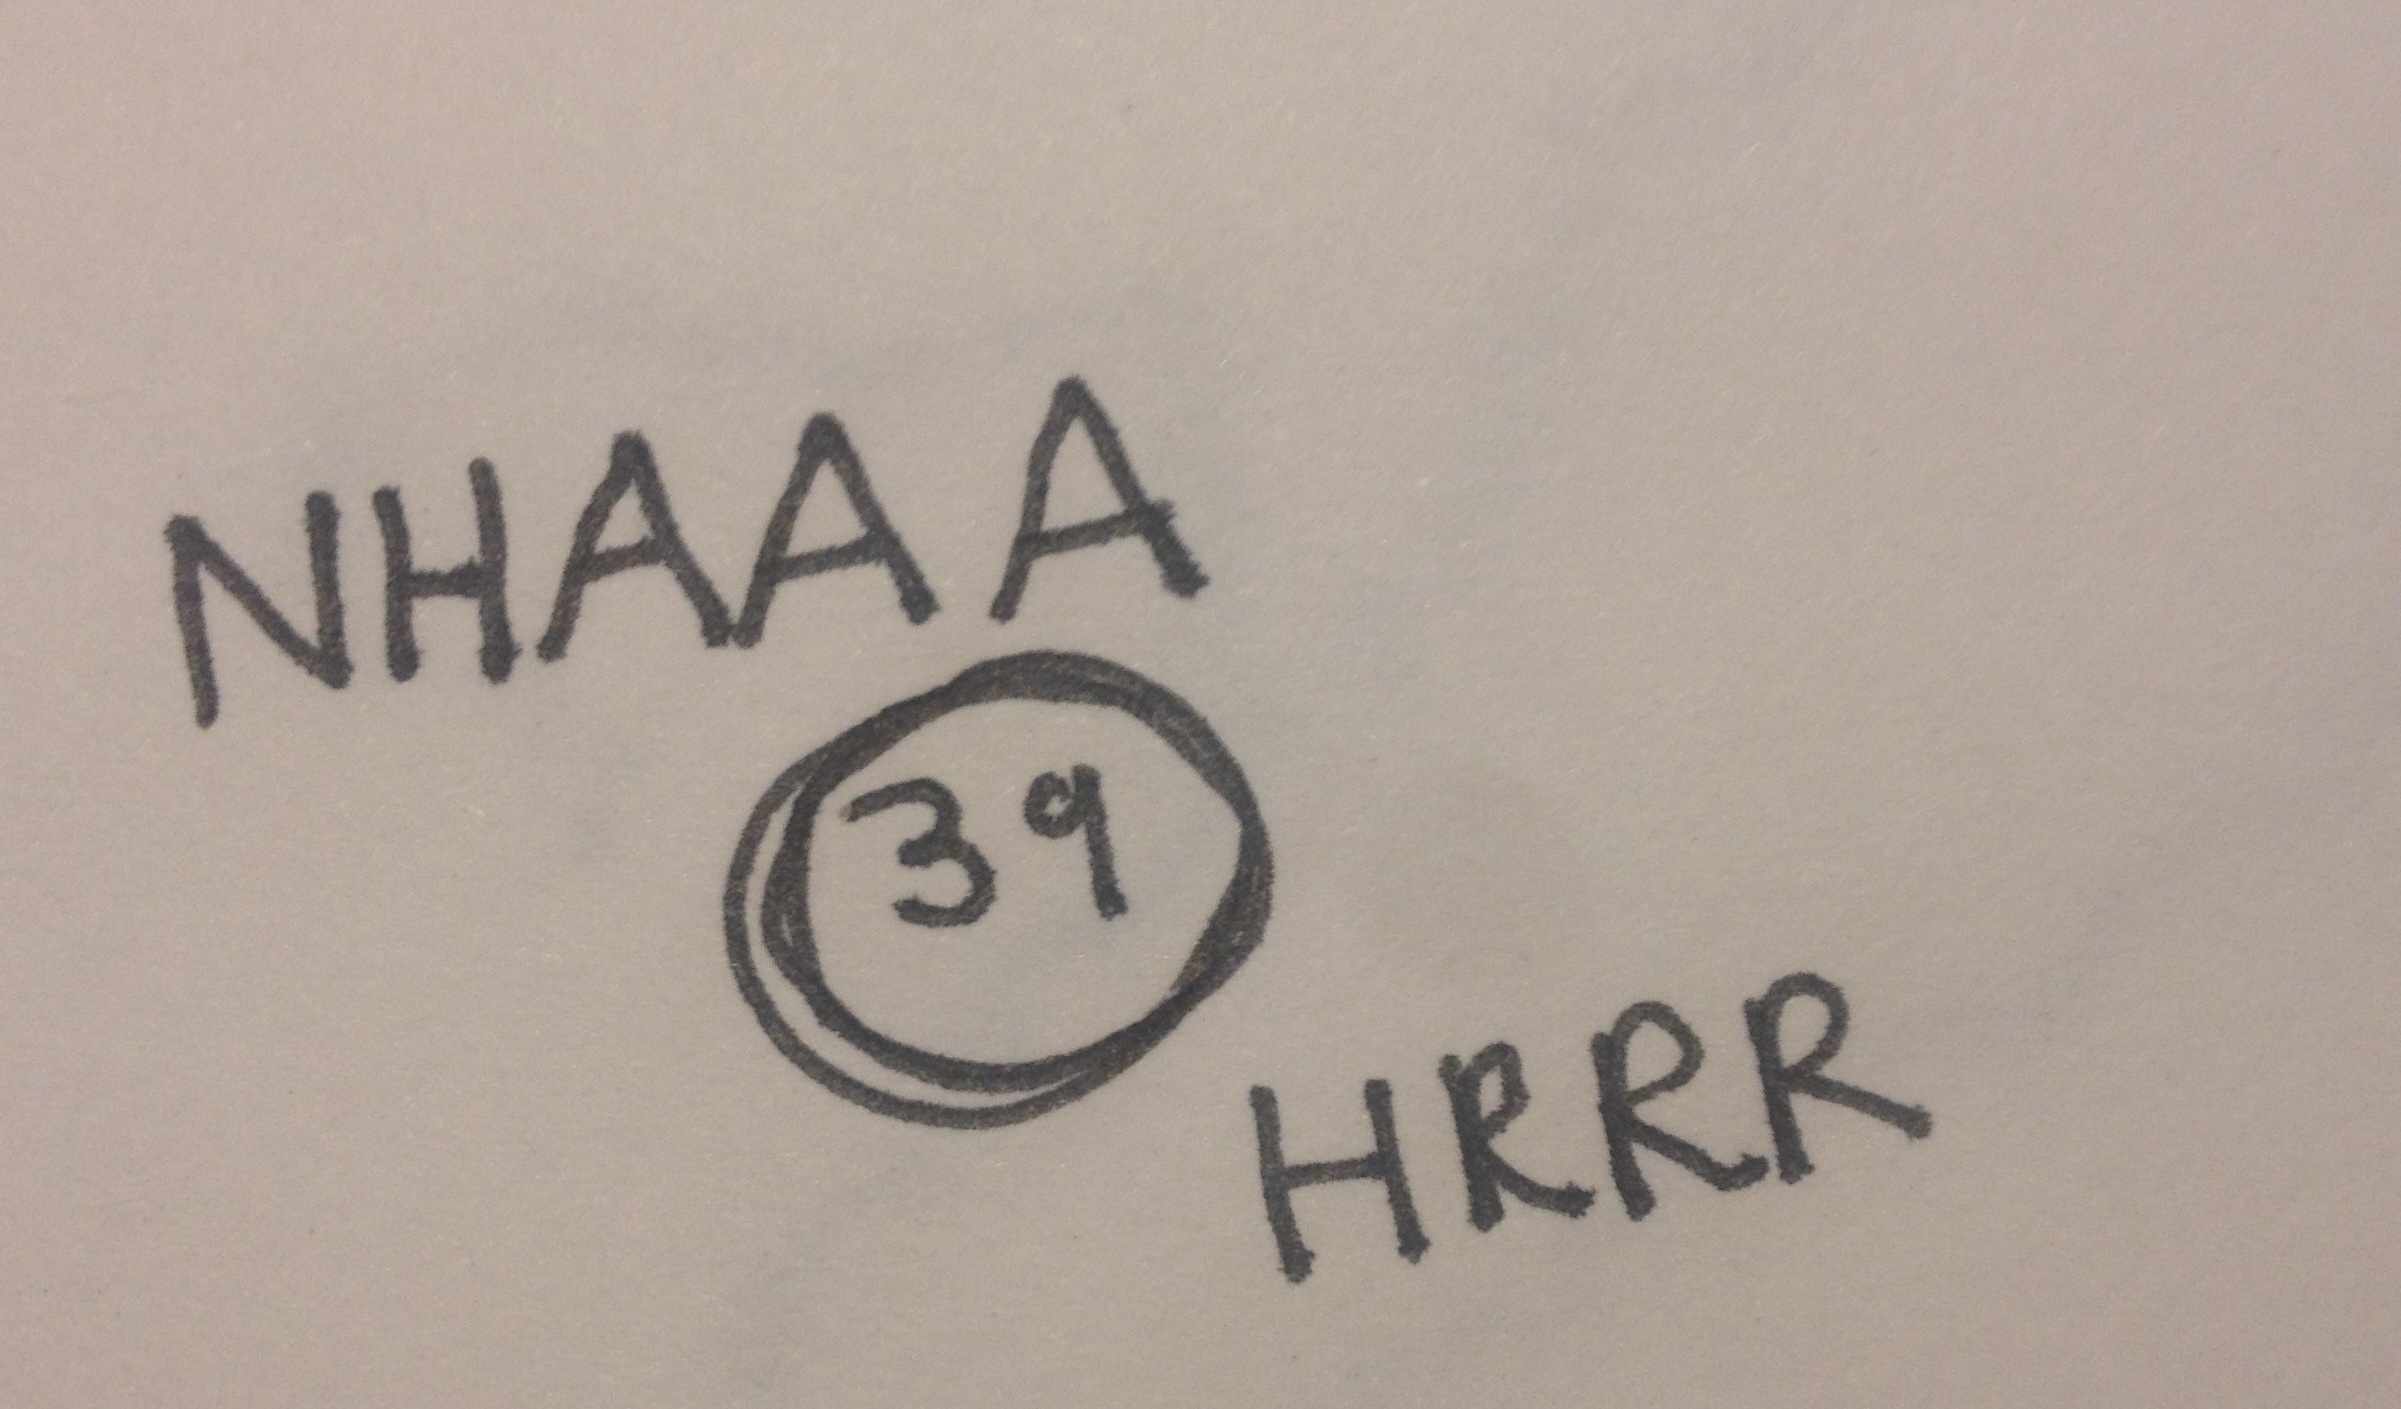 NHAAA
39
HRRR